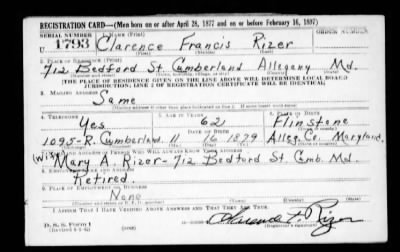 REGISTRATION CARD—(Men born on or after April 28, 1877 and on or before February 16, 1897)
SERIAL NUMBER 1. NAME (Print) ORDER NUMBER
U 1793 Clarence Francis Rizer
2. PLACE OF RESIDENCE (Print)
712 Bedford St. Cumberland Allegany Md.
[THE PLACE OF RESIDENCE GIVEN ON THE LINE ABOVE WILL DETERMINE LOCAL BOARD
JURISDICTION; LINE 2 OF REGISTRATION CERTIFICATE WILL BE IDENTICAL]
3. MAILING ADDRESS
Same
[Mailing address if other than place indicated on line 2. If same insert word same]
4. TELEPHONE 5. AGE IN YEARS 6. PLACE OF BIRTH
Yes 62 Flinstone
DATE OF BIRTH
1095-R. Cumberland 11 16 1879 Alleg. Co. Maryland
7. NAME AND ADDRESS OF PERSON WHO WILL ALWAYS KNOW YOUR ADDRESS
(Wife) Mary A. Rizer-712 Bedford St. Cmb. Md.
8. EMPLOYER'S NAME AND ADDRESS
Retired
9. PLACE OF EMPLOYMENT OR BUSINESS
None
I AFFIRM THAT I HAVE VERIFIED ABOVE ANSWERS AND THAT THEY ARE TRUE.
D. S. S. Form 1 Clarence F. Rizer
(Registrant's signature)